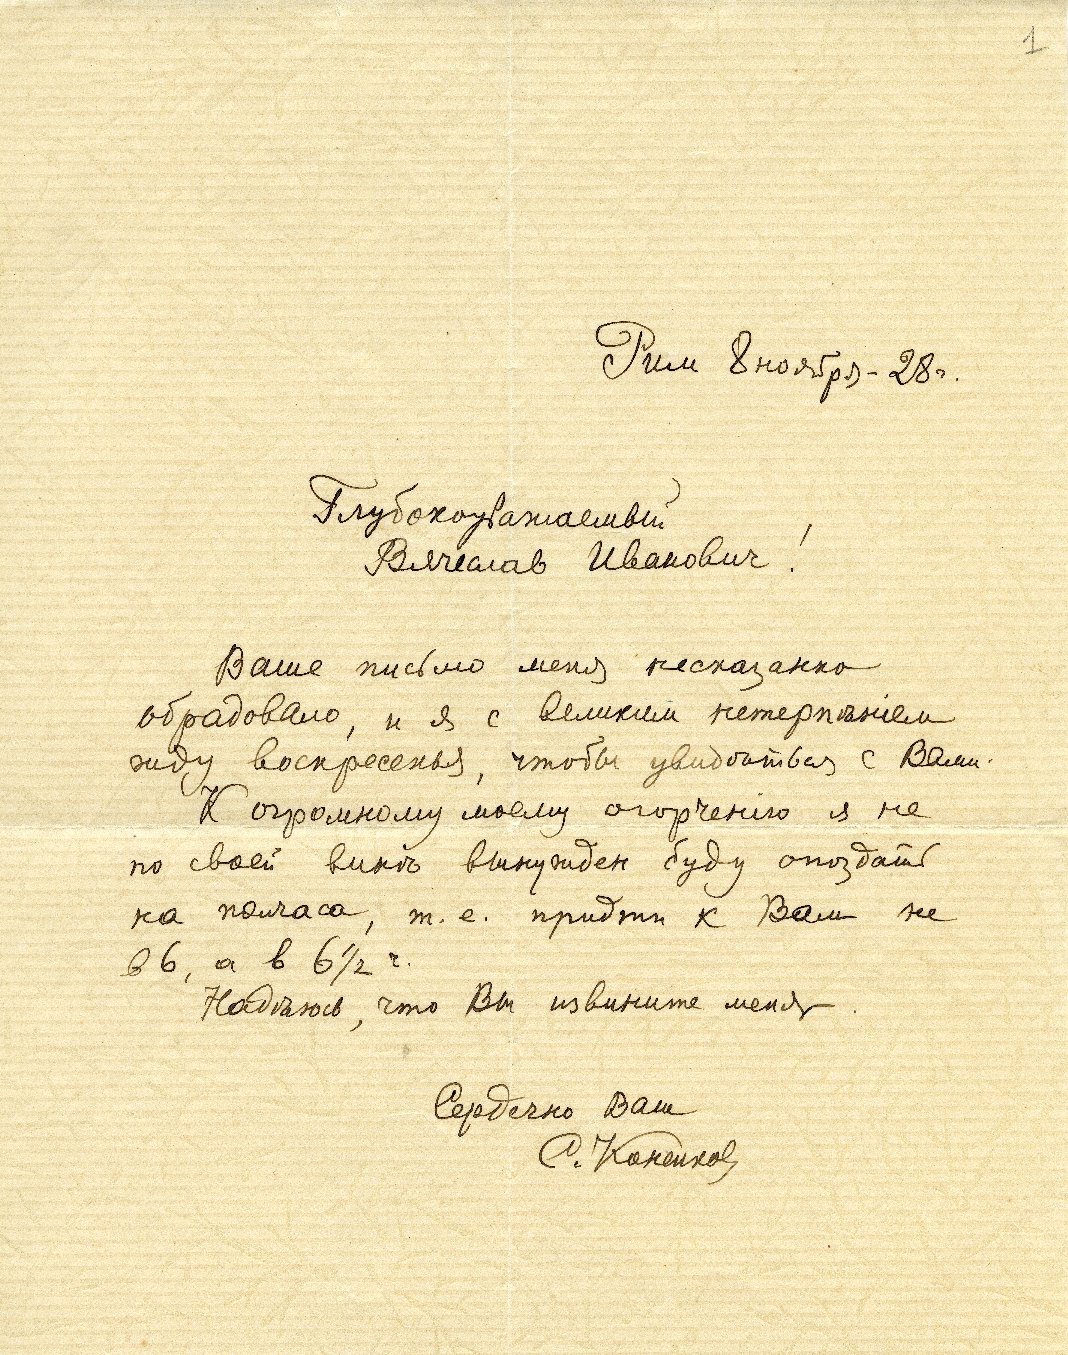 1
Рим 8 ноября - 28 г.
Глубокоуважаемый
Вячеслав Иванович!
Ваше письмо меня несказанно
обрадовало, и я с великим нетерпѣнiем
жду воскресенья, чтобы увидѣться с Вами.
К огромному моему огорченiю я не
по своей винѣ вынужден буду опоздать
на полчаса, т. е. придти к Вам не
в 6, а в 6 1/2 ч.
Надѣюсь, что Вы извините меня.
Сердечно Ваш
С. Коненков